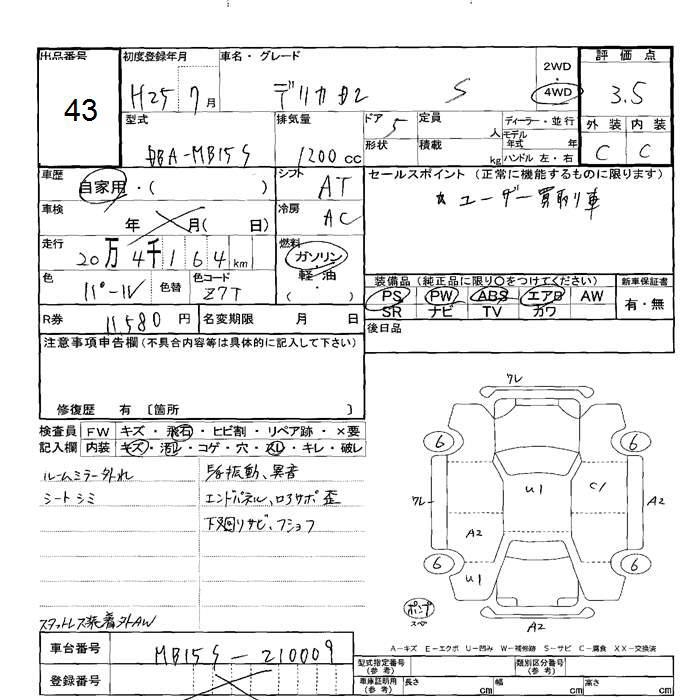 出品番号 初度登録年月 車名・グレード 2WD・4WD 評価点
43 H25 7月 デリカD2 S 3.5
型式 排気量 ドア 定員 ディーラー・並行 外装 内装
DBA-MB15S 1200cc 5 人 モデル年式 年 C C
形状 積載 kg ハンドル 左・右
車歴 シフト セールスポイント (正常に機能するものに限ります)
自家用・( ) AT ユーザー買取り車
車検 冷房
年 月( 日) AC
走行 燃料
20万4千164km ガソリン
軽油
色 色替 色コード ・
パール Z7T ( )
装備品 (純正品に限り○をつけてください) 新車保証書
PS PW ABS エアB AW 有・無
SR ナビ TV カワ
R券 11,580円 名変期限 月 日 後日品
注意事項申告欄(不具合内容等は具体的に記入して下さい)
修復歴 有 〔箇所 〕
検査員 FW キズ・飛石・ヒビ割・リペア跡・×要
記入欄 内装 キズ・汚レ・コゲ・穴・スレ・キレ・破レ
ルームミラー外れ
シートシミ
振動、異音
エンドパネル、ロアサポ歪
下廻りサビ、フショク
スタットレス装着外AW
ワレ
6 6
ワレ U1 C1 A2
A2
6 U1 6
ポンプ
スペ
A2
A-キズ E-エクボ U-凹み W-補修跡 S-サビ C-腐食 XX-交換済
車台番号 MB15S-210009
登録番号
型式指定番号(参考) 類別区分番号(参考)
車庫証明用(参考) 長さ cm 幅 cm 高さ cm